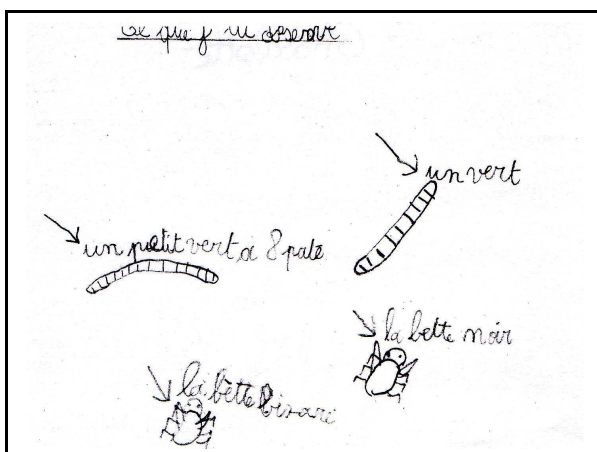 ce que j'ai observé
un vert
un petit vert à 8 pate
la bette noir
la bette bizare